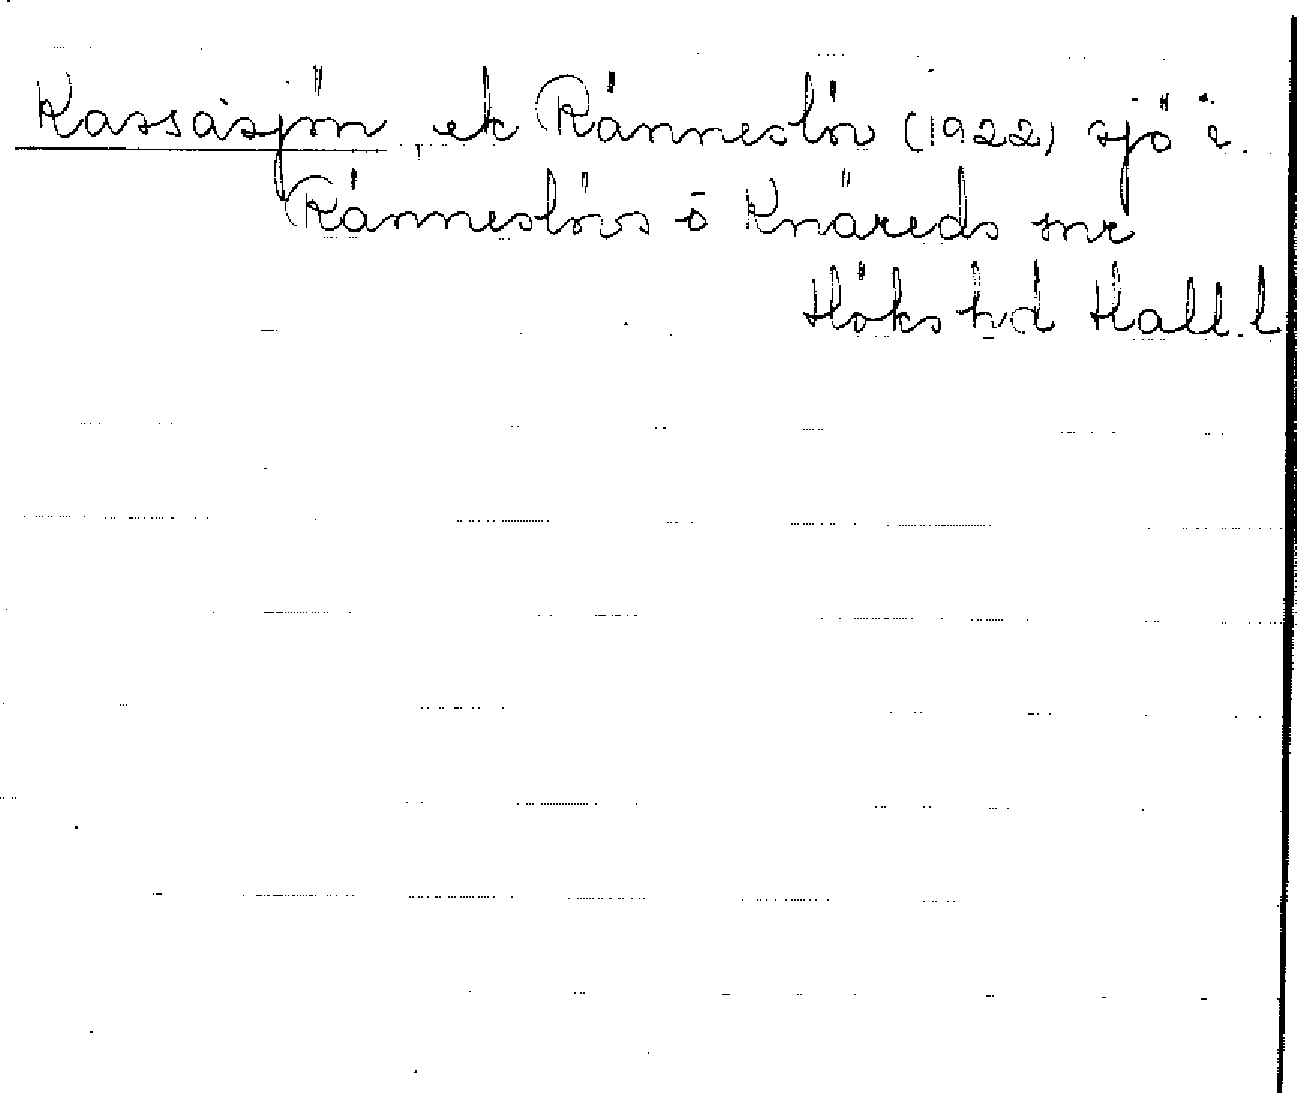 Kassasjön, ek Ränneslöv (1922) sjö i
Ränneslövs o Knäreds snr
Höks hd Hall.l